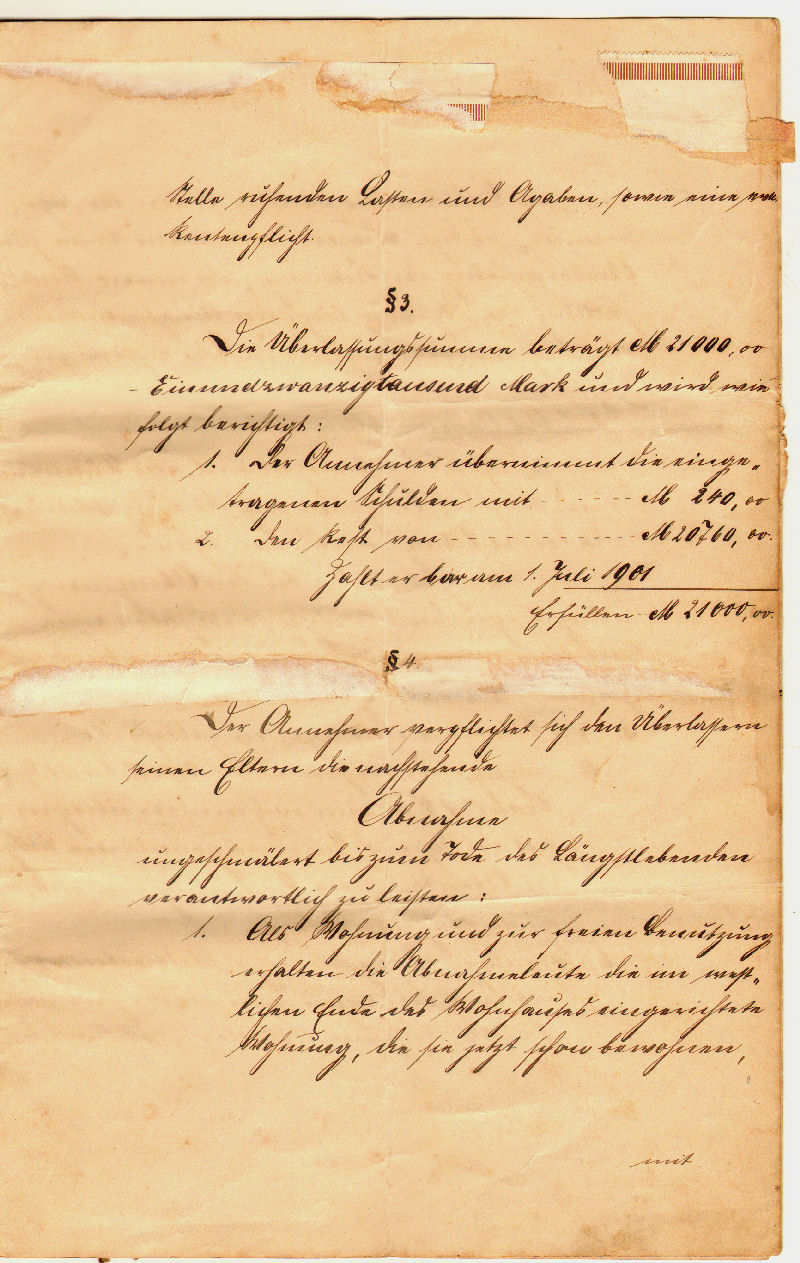 Stelle ruhenden Lasten und Agaben, sowie eine
Rentenpflicht.
§ 3.
Die Überlassungssumme beträgt M 21000,00
Einundzwanzigtausend Mark und wird wie
folgt berichtigt:
1. Der Annehmer übernimmt die einge-
tragenen Schulden mit - - - - - M 240,00
2. den Rest von - - - - - - - - - - - M 20760,00.
Zahlt er bar am 1. Juli 1901
Erfüllen M 21000,00.
§ 4.
Der Annehmer verpflichtet sich den Überlassern
seinen Eltern die nachstehende
Abnahme
ungeschmälert bis zum Tode des Längstlebenden
verantwortlich zu leisten:
1. Als Wohnung und zur freien Benutzung
erhalten die Abnahmeleute die im west-
lichen Ende des Wohnhauses eingerichtete
Wohnung, die sie jetzt schon bewohnen,
mit